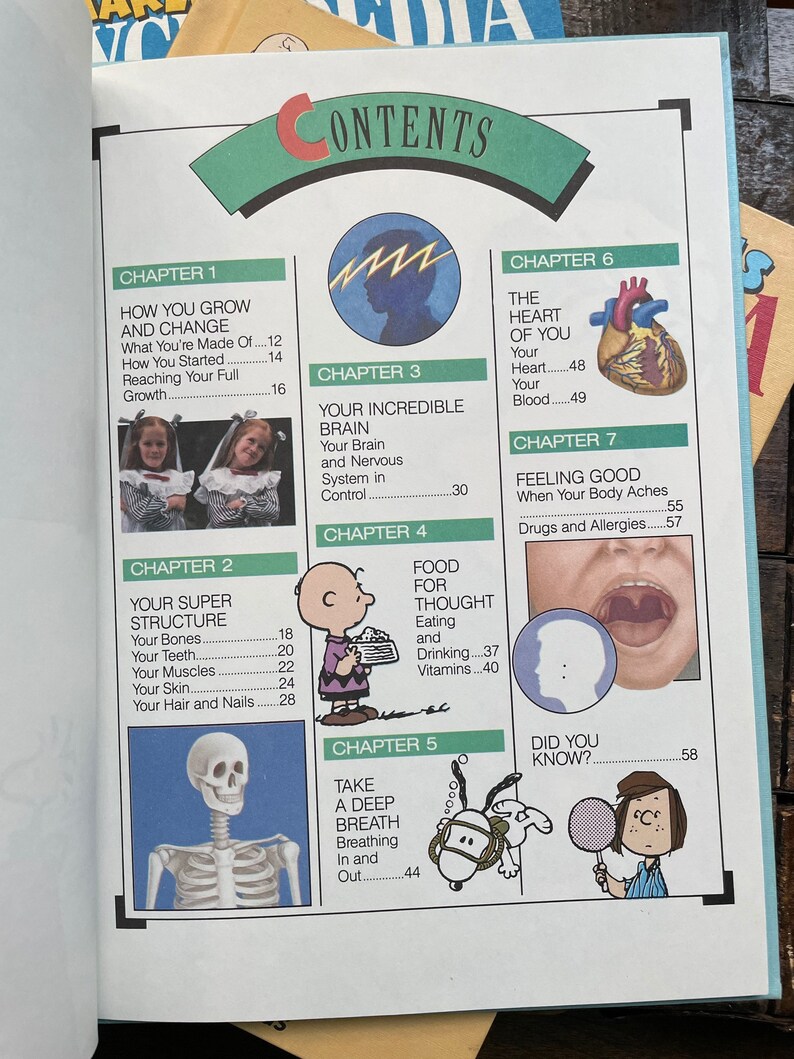 PEDIA
CONTENTS
CHAPTER 1
HOW YOU GROW
AND CHANGE
What You're Made Of....12
How You Started ............14
Reaching Your Full
Growth..............................16
CHAPTER 2
YOUR SUPER
STRUCTURE
Your Bones......................18
Your Teeth........................20
Your Muscles ..................22
Your Skin.........................24
Your Hair and Nails ......28
CHAPTER 3
YOUR INCREDIBLE
BRAIN
Your Brain
and Nervous
System in
Control ........................30
CHAPTER 4
FOOD
FOR
THOUGHT
Eating
and
Drinking....37
Vitamins ...40
CHAPTER 5
TAKE
A DEEP
BREATH
Breathing
In and
Out............44
CHAPTER 6
THE
HEART
OF YOU
Your
Heart......48
Your
Blood.....49
CHAPTER 7
FEELING GOOD
When Your Body Aches
..........................................55
Drugs and Allergies.....57
DID YOU
KNOW?..........................58